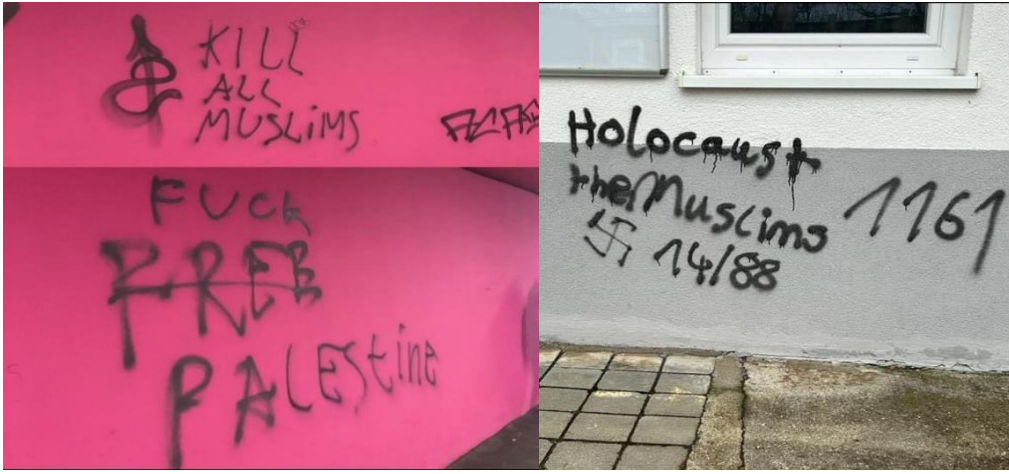 KILL
ALL
MUSLIMS
FUCK
FREE
PALEStine
Holocaust
the Muslims
1161
14/88